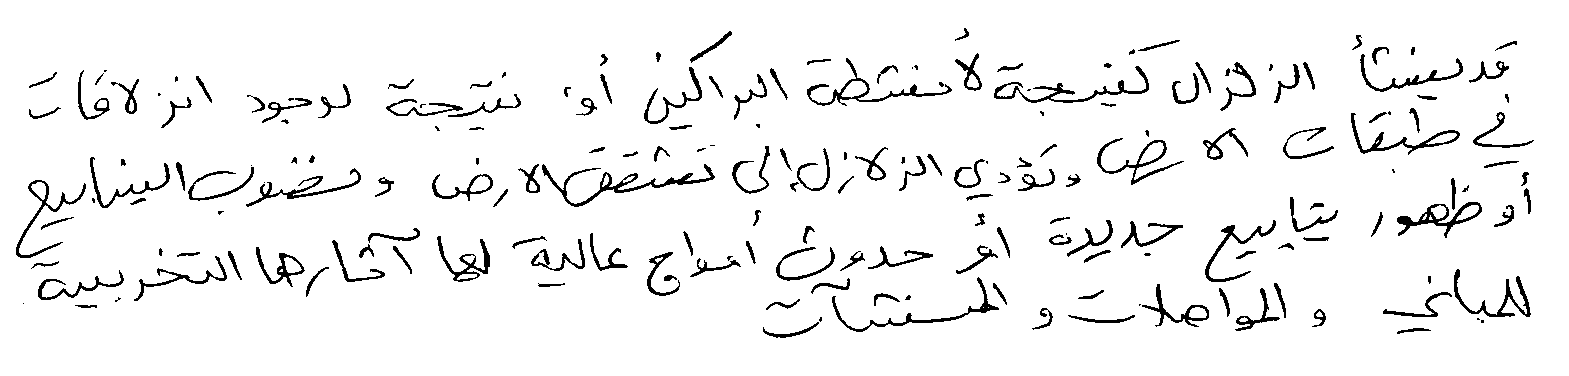 قد ينشأ الزلزال كنتيجة لأنشطة البراكين أو نتيجة لوجود انزلاقات
في طبقات الارض وتؤدي الزلازل إلى تشقق الارض ونضوب الينابيع
أو ظهور ينابيع جديدة أو حدوث أمواج عالية لها آثارها التخريبية
للمباني والمواصلات والمنشآت